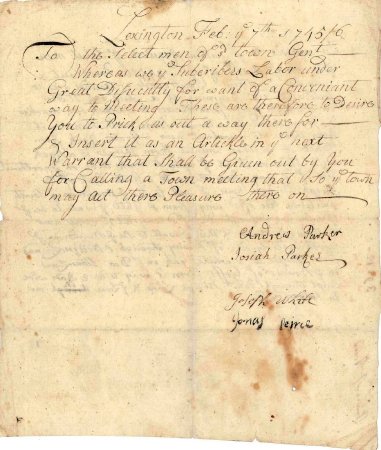 Lexington Feb. ye 7th 1745/6
To the Select men of sd town Gent
Whereas we ye Subscribers Labor under
Great Difucently for want of a Conveniant
way to Meeting These are therefore to Desire
You to Prick us out a way there for
Insert it as an Article in ye next
Warrant that Shall be Given out by You
for Calling a Town meeting that So ye town
may act there Pleasure there on
Andrew Parker
Josiah Parker
Joseph White
Jonas Peirce